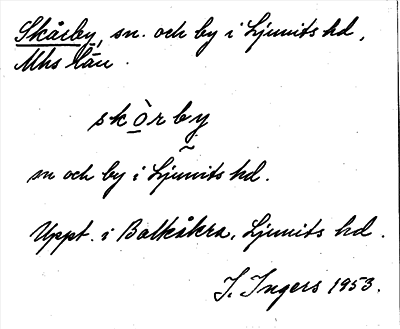 Skårby, sn. och by i Ljunits hd,
Mhs län.
skò̠rby̰
sn och by i Ljunits hd.
Uppt. i Balkåkra, Ljunits hd.
I. Ingers 1953.